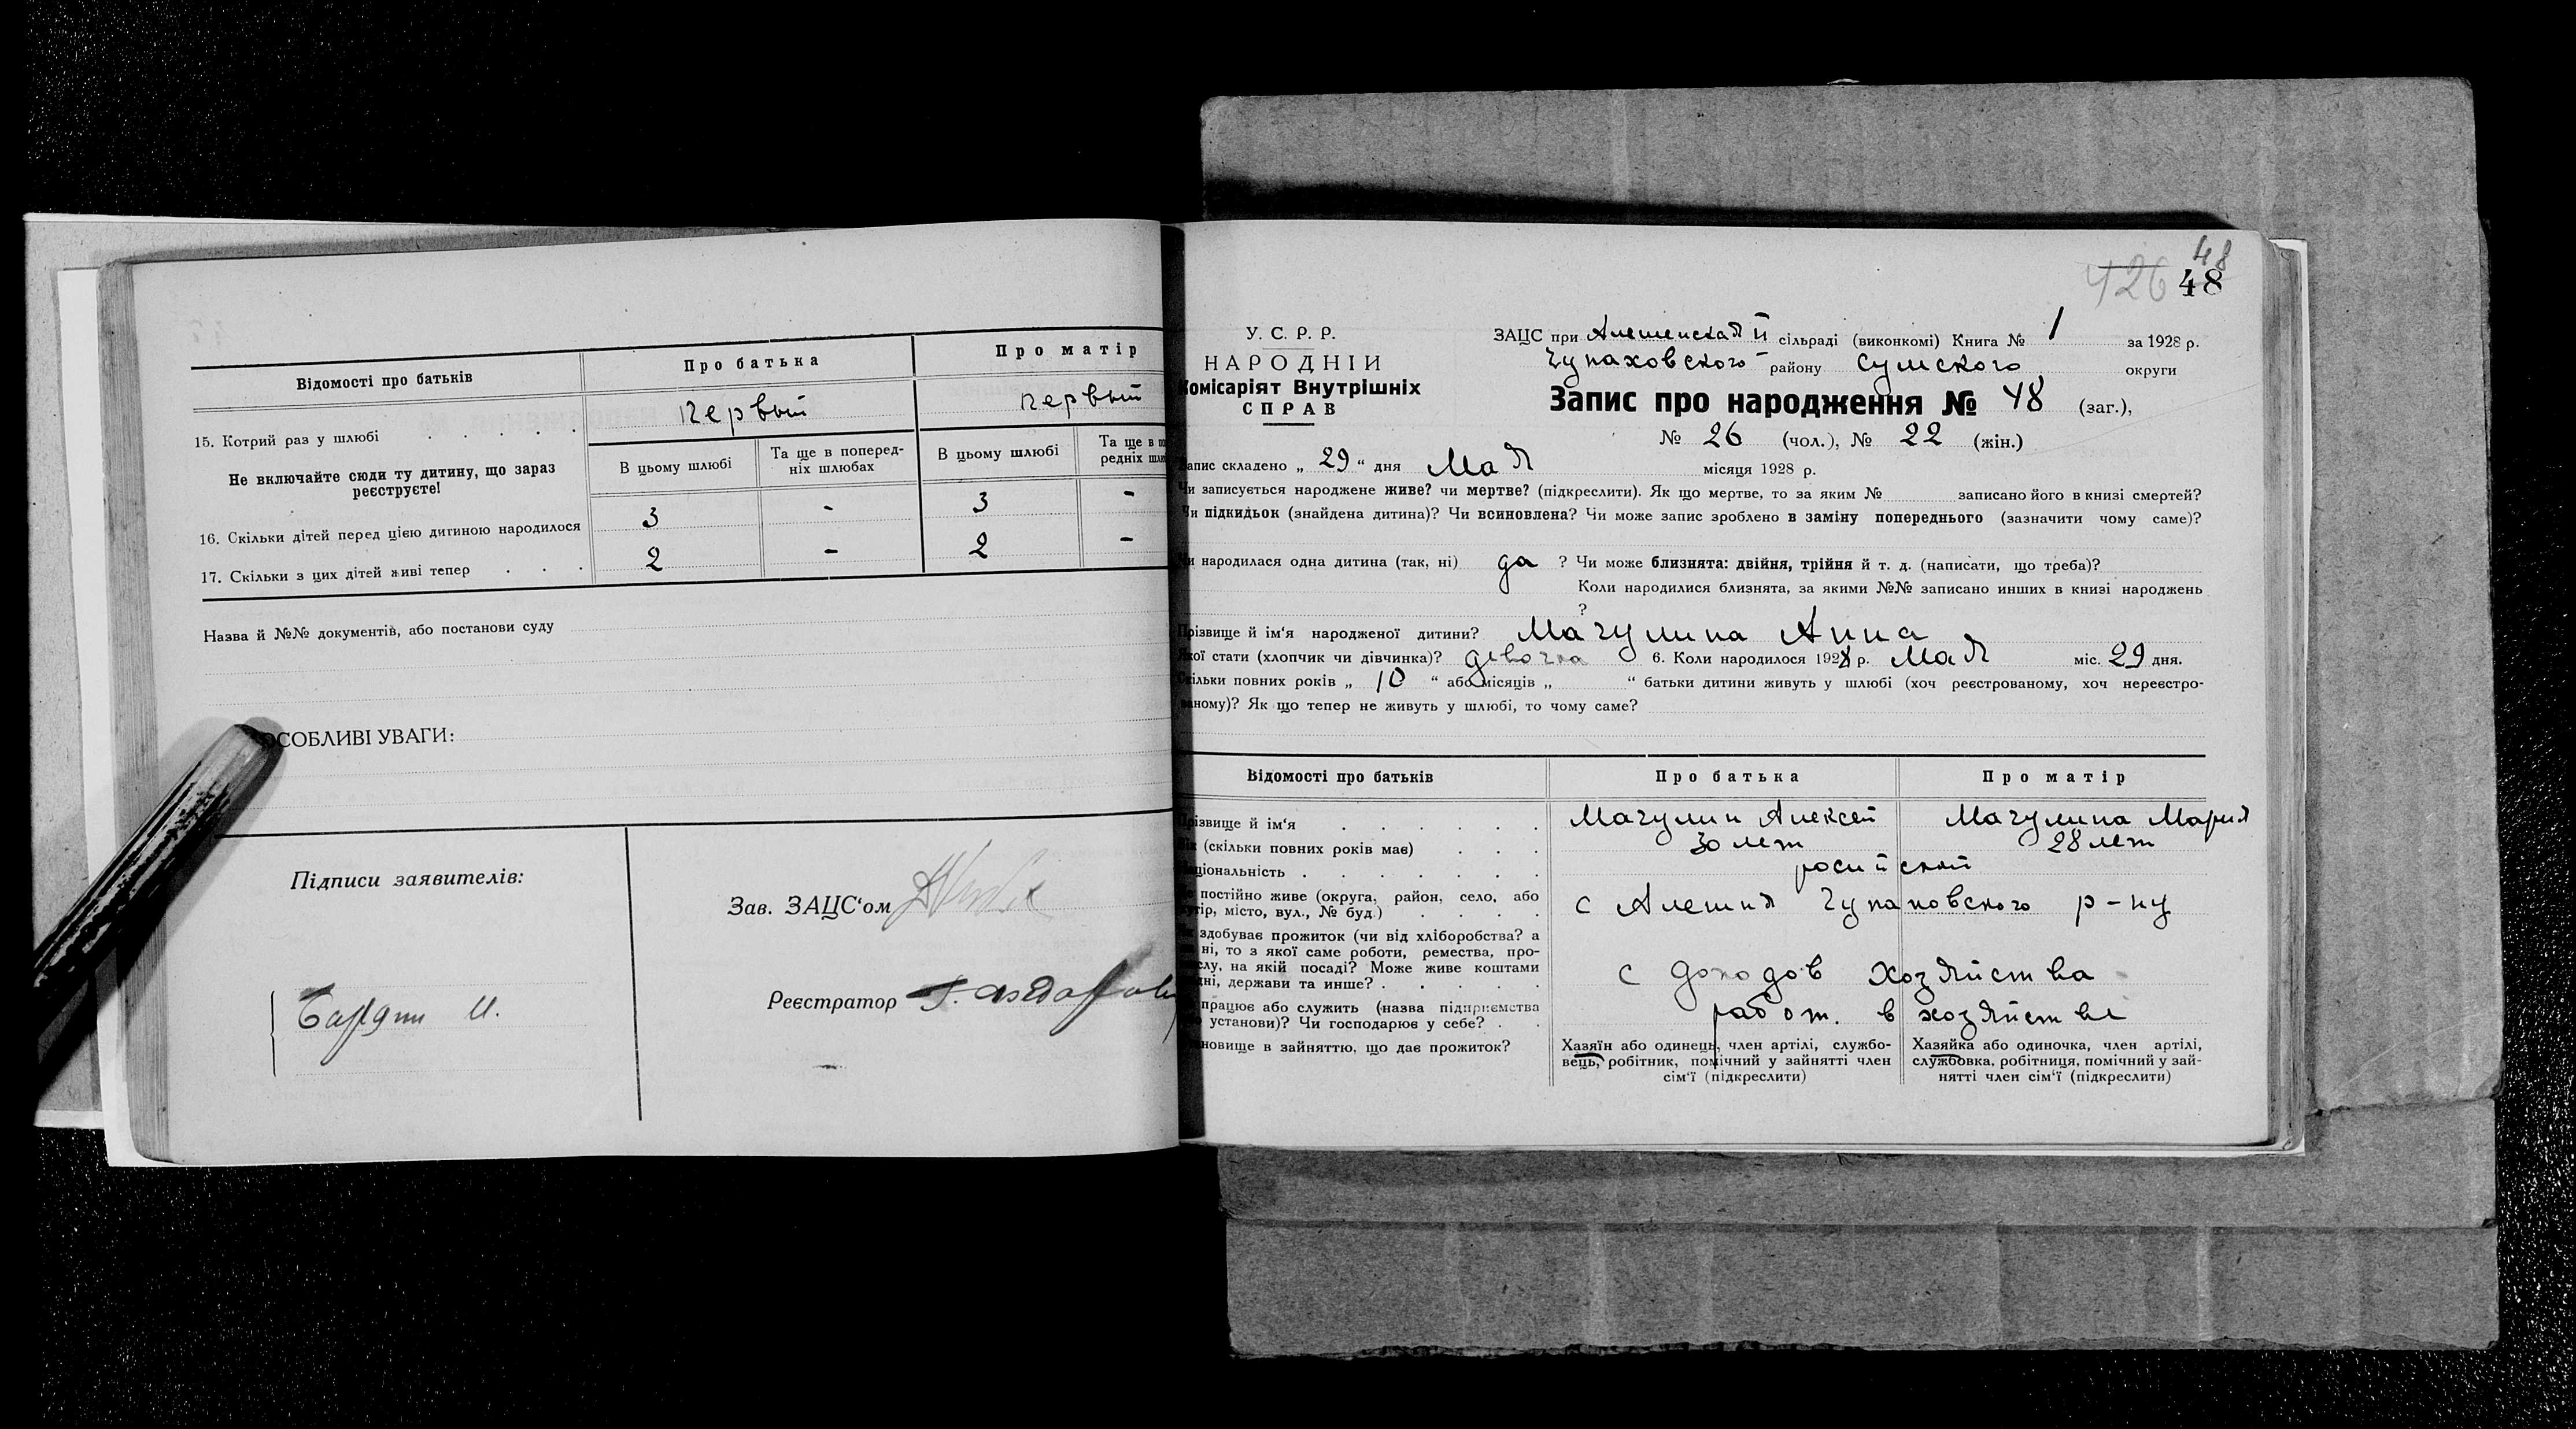 Відомості про батьків
Про батька
Про матір
15. Котрий раз у шлюбі
первый
первый
Не включайте сюди ту дитину, що зараз
реєструєте!
В цьому шлюбі
Та ще в поперед-
ніх шлюбах
В цьому шлюбі
Та ще в
редніх
16. Скільки дітей перед цією дитиною народилося
3
-
3
-
17. Скільки з цих дітей живі тепер
2
-
2
-
Назва й №№ документів, або постанови суду
ОСОБЛИВІ УВАГИ:
Підписи заявителів:
Зав. ЗАЦС‘ом
Реєстратор
И.
48
426 48
У. С. Р. Р.
НАРОДНІЙ
Комісаріят Внутрішніх
СПРАВ
ЗАЦС при Алешенской сільраді (виконкомі) Книга № 1 за 1928 р.
Чупаховского району Сумского округи
Запис про народження № 48 (заг.),
№ 26 (чол.), № 22 (жін.)
Запис складено „ 29 “ дня Мая місяця 1928 р.
Чи записується народжене живе? чи мертве? (підкреслити). Як що мертве, то за яким № записано його в книзі смертей?
Чи підкидьок (знайдена дитина)? Чи всиновлена? Чи може запис зроблено в заміну попереднього (зазначити чому саме)?
Чи народилася одна дитина (так, ні) да ? Чи може близнята: двійня, трійня й т. д. (написати, що треба)?
Коли народилися близнята, за якими №№ записано инших в книзі народжень
?
Прізвище й ім‘я народженої дитини? Мачулина Анна
Якої стати (хлопчик чи дівчинка)? девочка 6. Коли народилося 1928 р. Мая міс. 29 дня.
Скільки повних років „ 10 “ або місяців „ “ батьки дитини живуть у шлюбі (хоч реєстрованому, хоч нереєстро-
ваному)? Як що тепер не живуть у шлюбі, то чому саме?
Відомості про батьків
Про батька
Про матір
Прізвище й ім‘я
Мачулин Алексей
Мачулина Мария
(скільки повних років має)
30 лет
28 лет
Національність
російской
постійно живе (округа, район, село, або
хутір, місто, вул., № буд.)
с Алешня Чупаховского р-ну
здобуває прожиток (чи від хліборобства? а
ні, то з якої саме роботи, ремества, про-
слу, на якій посаді? Може живе коштами
дні, держави та инше?
с доходов хозяйства
працює або служить (назва підприємства
установи)? Чи господарює у себе?
работ. в хозяйстве
новище в зайняттю, що дає прожиток?
Хазяїн або одинець, член артілі, службо-
вець, робітник, помічний у зайнятті член
сім‘ї (підкреслити)
Хазяйка або одиночка, член артілі,
службовка, робітниця, помічний у зай-
нятті член сім‘ї (підкреслити)